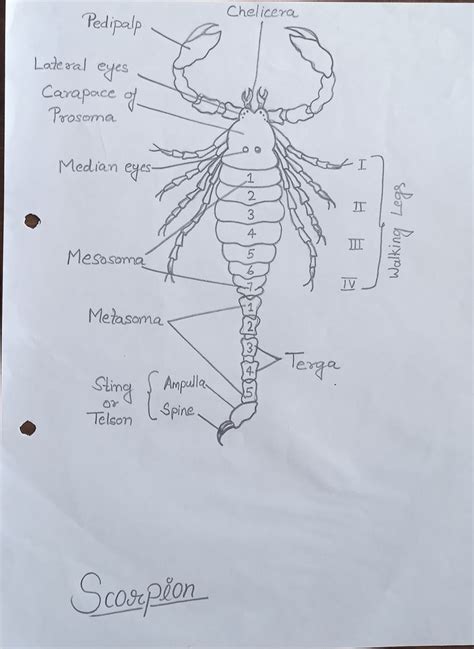 Chelicera
Pedipalp
Lateral eyes
Carapace of
Prosoma
Median eyes
I
II
III
IV
Walking Legs
1
2
3
4
5
6
7
Mesosoma
1
2
3
4
5
Metasoma
Terga
Sting
or
Telson
Ampulla
Spine
Scorpion